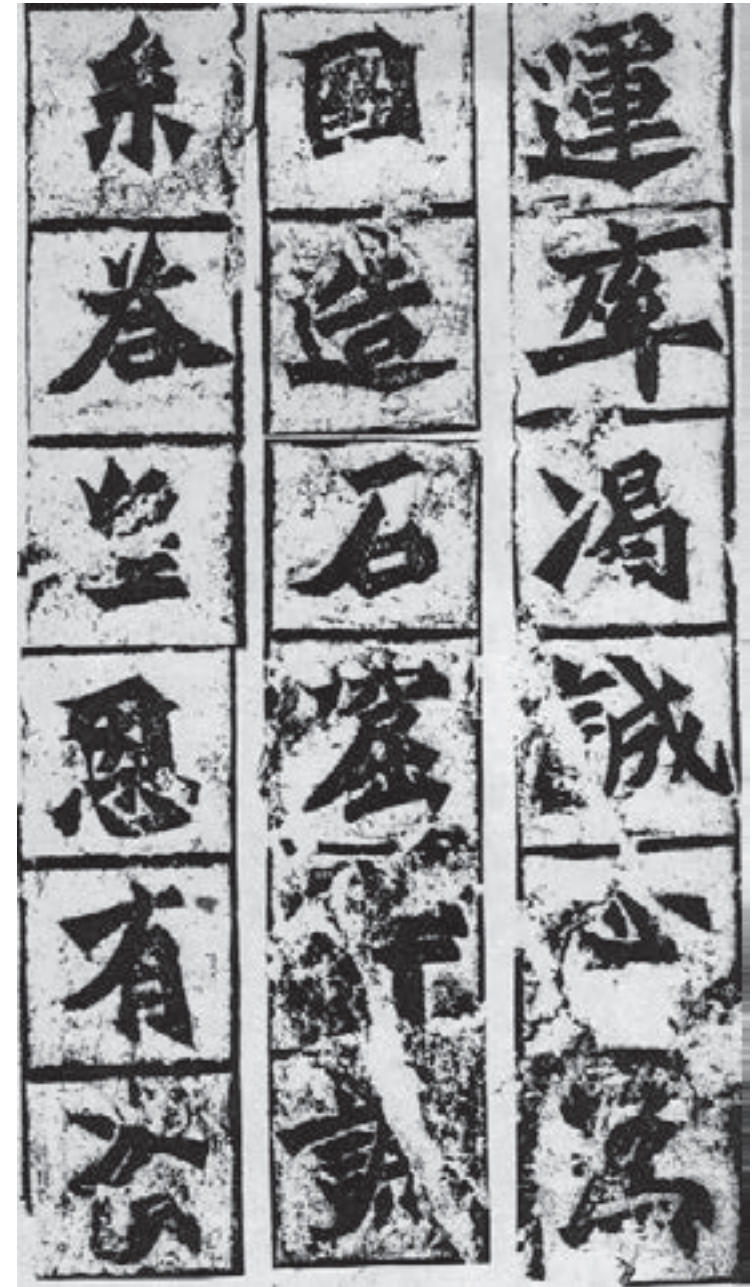 運率渴誠心為
國造石窟
系答皇恩有資